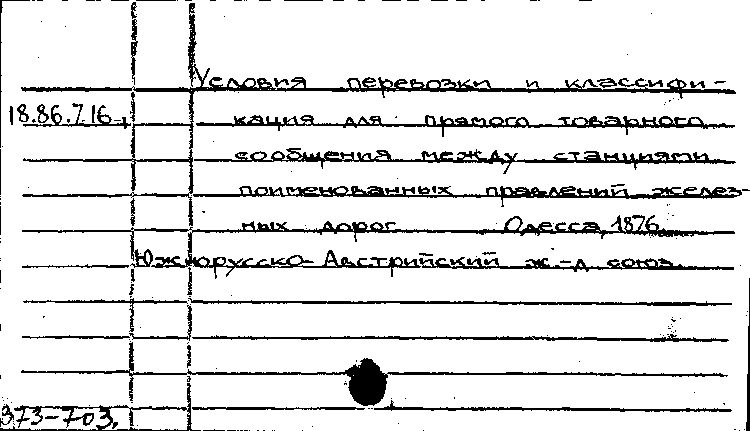 Условия перевозки и классифи-
18.86.7.16 кация для прямого товарного
сообщения между станциями
поименованных правлений желез-
ных дорог Одесса, 1876
Южнорусско-Австрийский ж.-д союз.
373-703.